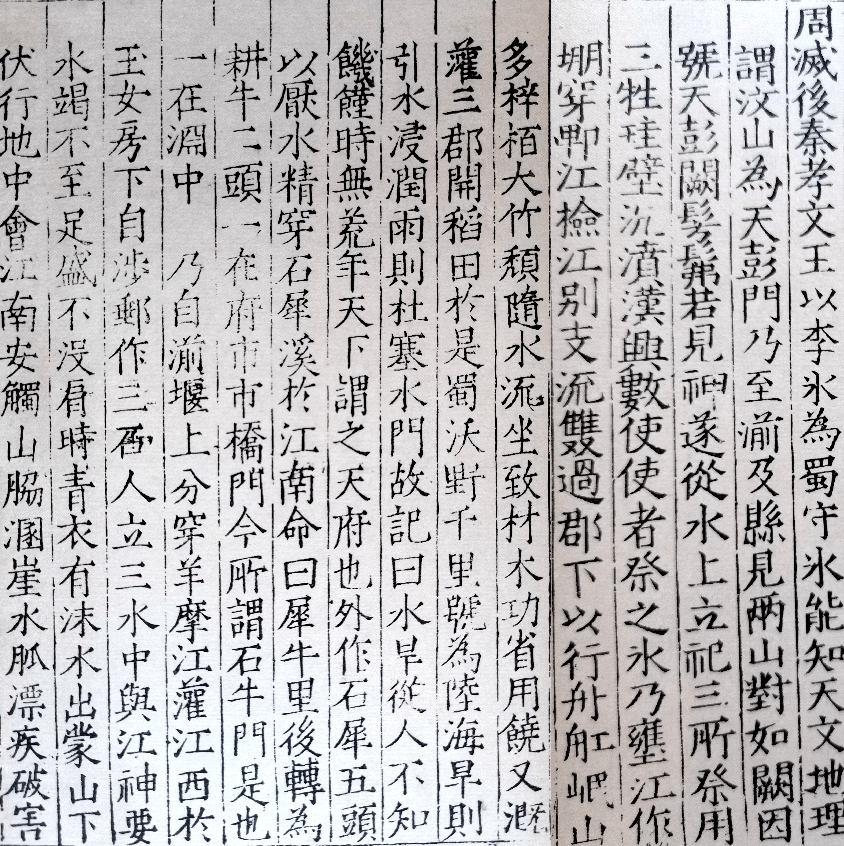 周滅後秦孝文王以李氷為蜀守氷能知天文地理
謂汶山為天彭門乃至湔及縣見兩山對如闕因
號天彭闕髣髴若見神遂從水上立祀三所祭用
三牲珪璧沉濆漢興數使使者祭之氷乃壅江作
堋穿郫江檢江别支流雙過郡下以行舟舡岷山
多梓栢大竹頹隨水流坐致材木功省用饒又溉
灌三郡開稻田於是蜀沃野千里號為陸海旱則
引水浸潤雨則杜塞水門故記曰水旱從人不知
饑饉時無荒年天下謂之天府也外作石犀五頭
以厭水精穿石犀溪於江南命曰犀牛里後轉為
耕牛二頭一在府市市橋門今所謂石牛門是也
一在淵中 乃自湔堰上分穿羊摩江灌江西於
玉女房下自涉郵作三石人立三水中與江神要
水竭不至足盛不没肩時青衣有沬水出蒙山下
伏行地中會江南安觸山脇溷崖水脈漂疾破害